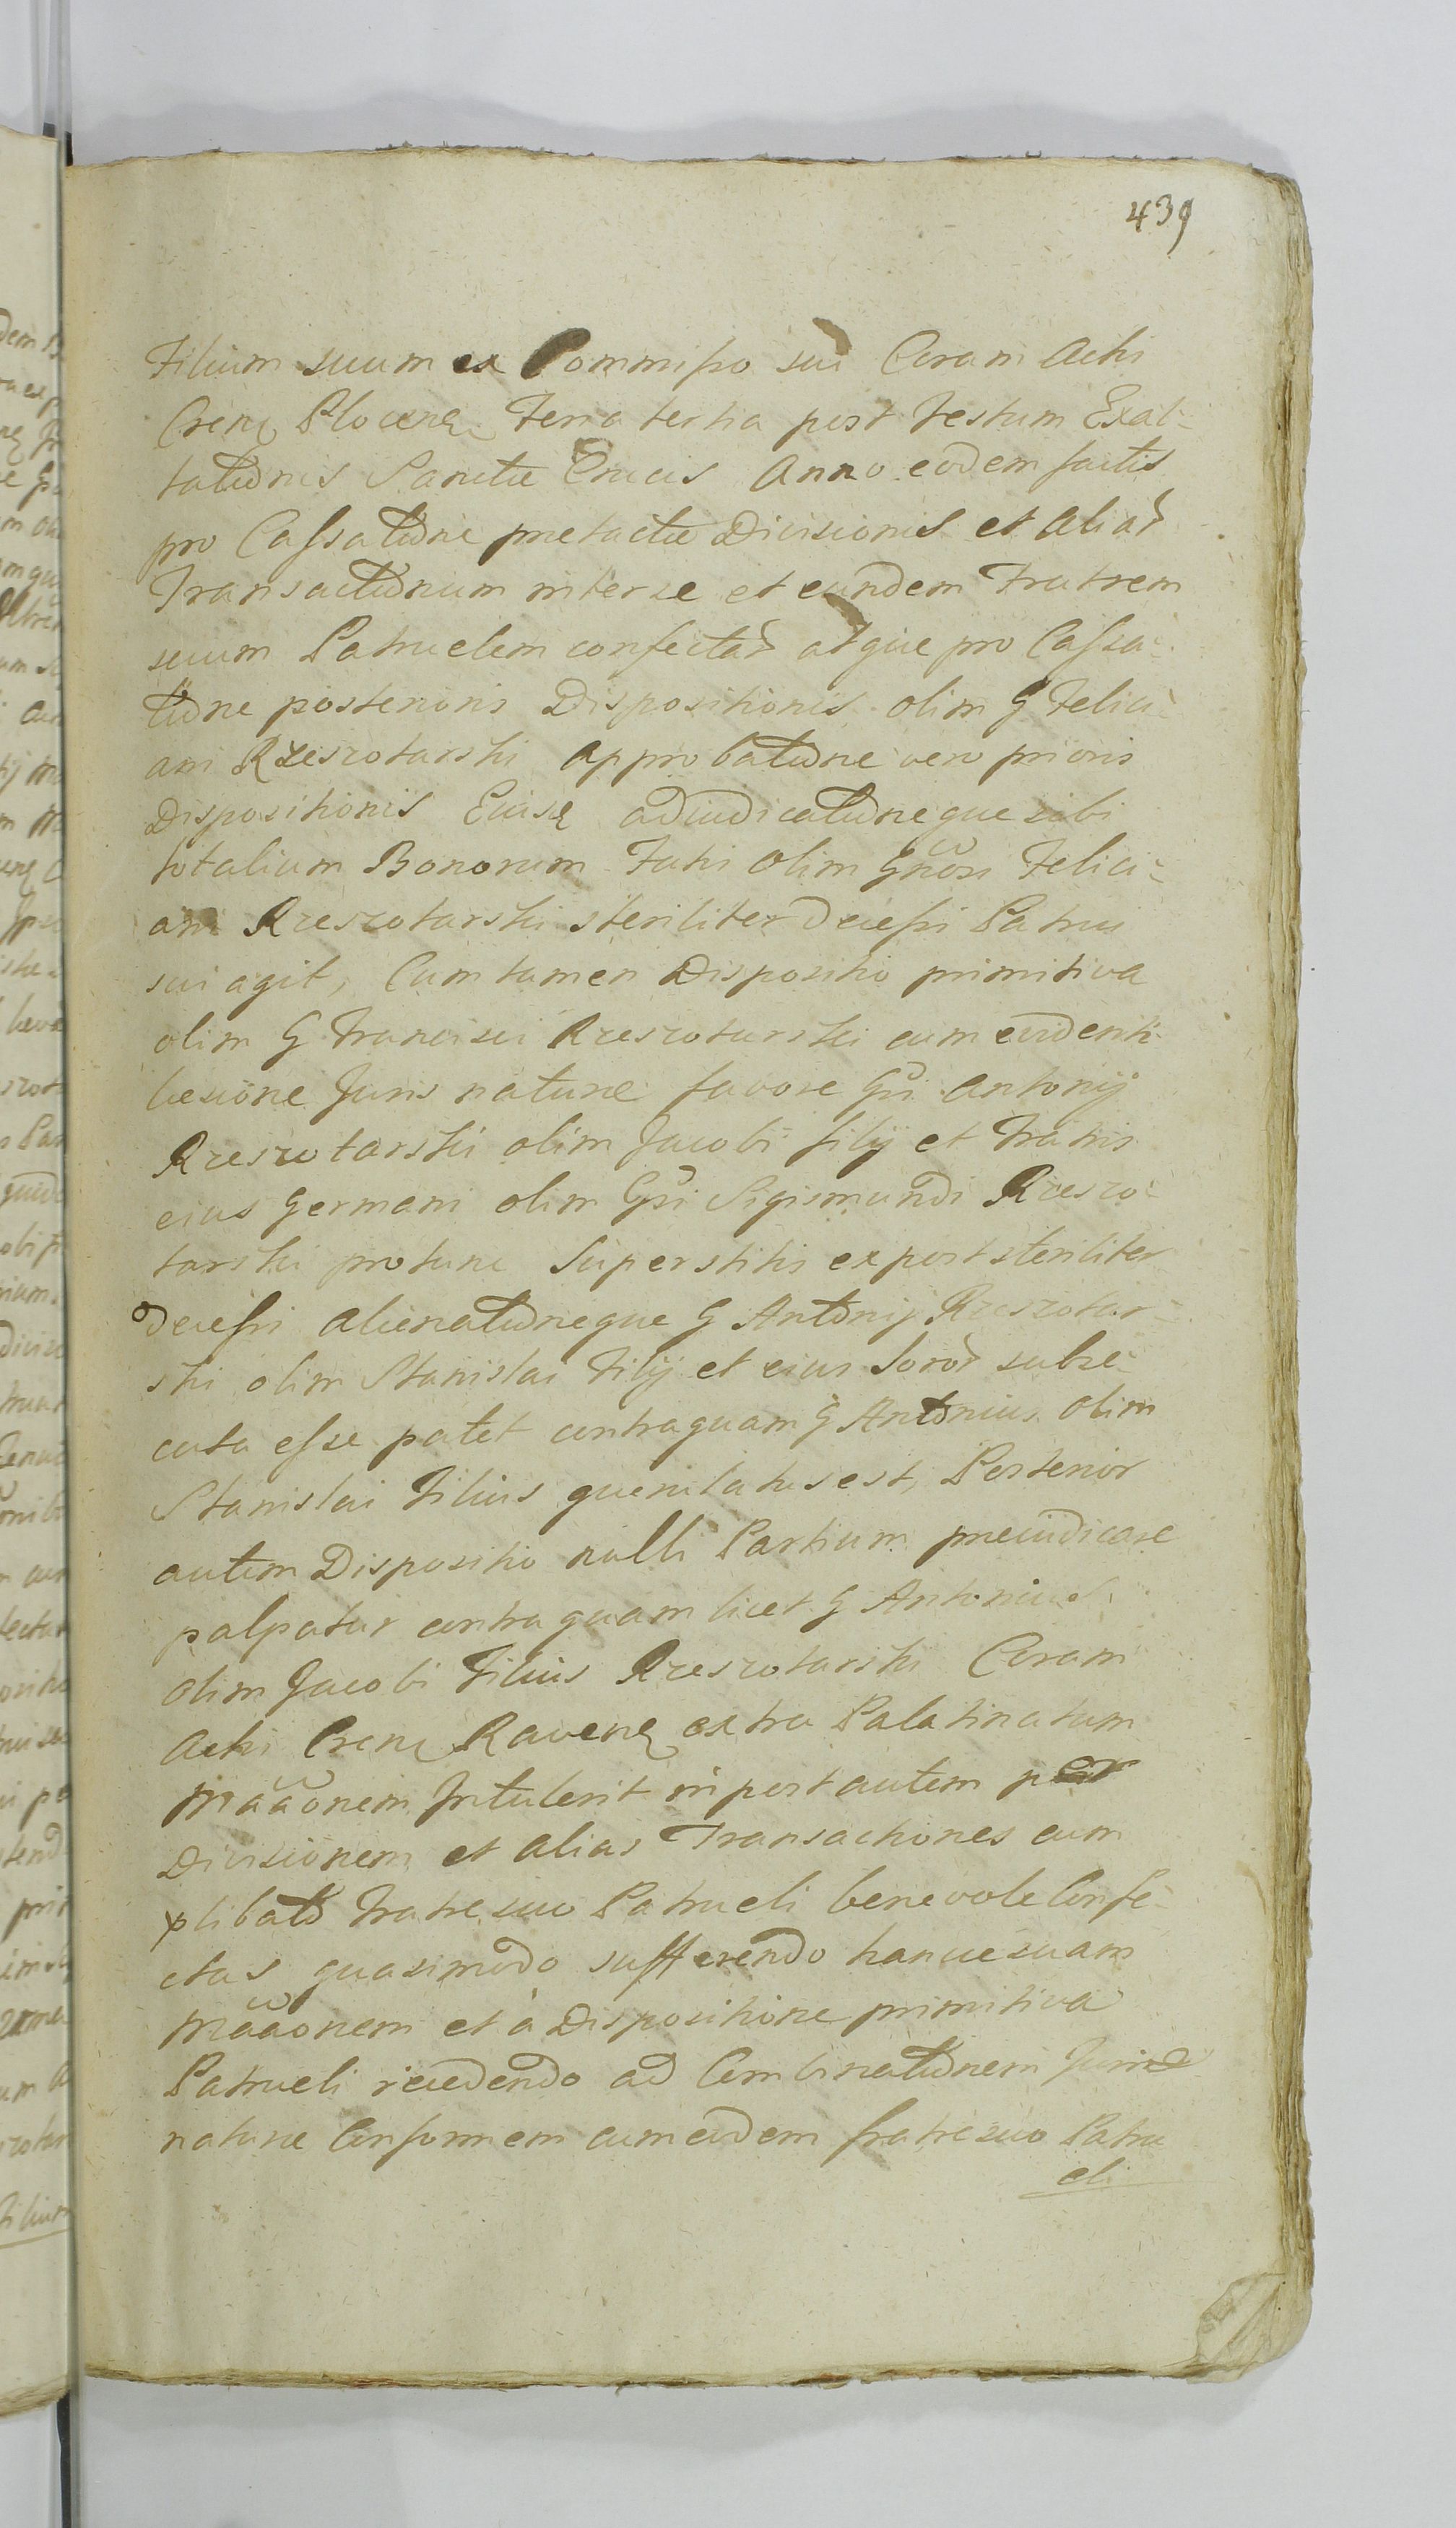 439
Filium suum ex Commisso sui Coram Actis
Cren Plocen Feria tertia post Festum Exal-
tationis Sanctæ Crucis Anno eodem factis
pro Cassatione prætactæ Divisionis et aliar
Transactionum inter se et eundem Fratrem
suum Patruelem confectar atque pro Cassa-
tione posterioris Dispositionis olim G Felici-
ani Rzeszotarski approbatione vero prioris
Dispositionis Eiusq adiudicationeque sibi
totalium Bonorum Fati olim Gnosi Felici-
ani Rzeszotarski steriliter decessi Patrui
sui agit, Cum tamen Dispositio primitiva
olim G Francisci Rzeszotarski cum evidenti
læsione Juris naturæ favore Gsi Antonij
Rzeszotarski olim Jacobi filij et Fratris
eius Germani olim Gsi Sigismundi Rzeszo-
tarski pro tunc Superstitis ex post steriliter
decessi alienationeque G Antonij Rzeszotar-
ski olim Stanislai Filij et eius Soror subse-
cuta esse patet contra quam G Antonius olim
Stanislai Filius querulatus est, Posterior
autem Dispositio nulli Partium præiudicare
palpatur contra quam licet G Antonius
olim Jacobi Filius Rzeszotarski Coram
Actis Cren Raven extra Palatinatum
Mããonem Intulerit in post autem per
Divisionem et alias Transactiones cum
plibato Fratre suo Patrueli benevole Confe-
ctas quasimodo sufferendo hancce suam
Mããonem et à Dispositione primitiva
Patrueli recedendo ad Combinationem Juri
naturæ Conformem cum eodem fratre suo Patru
eli